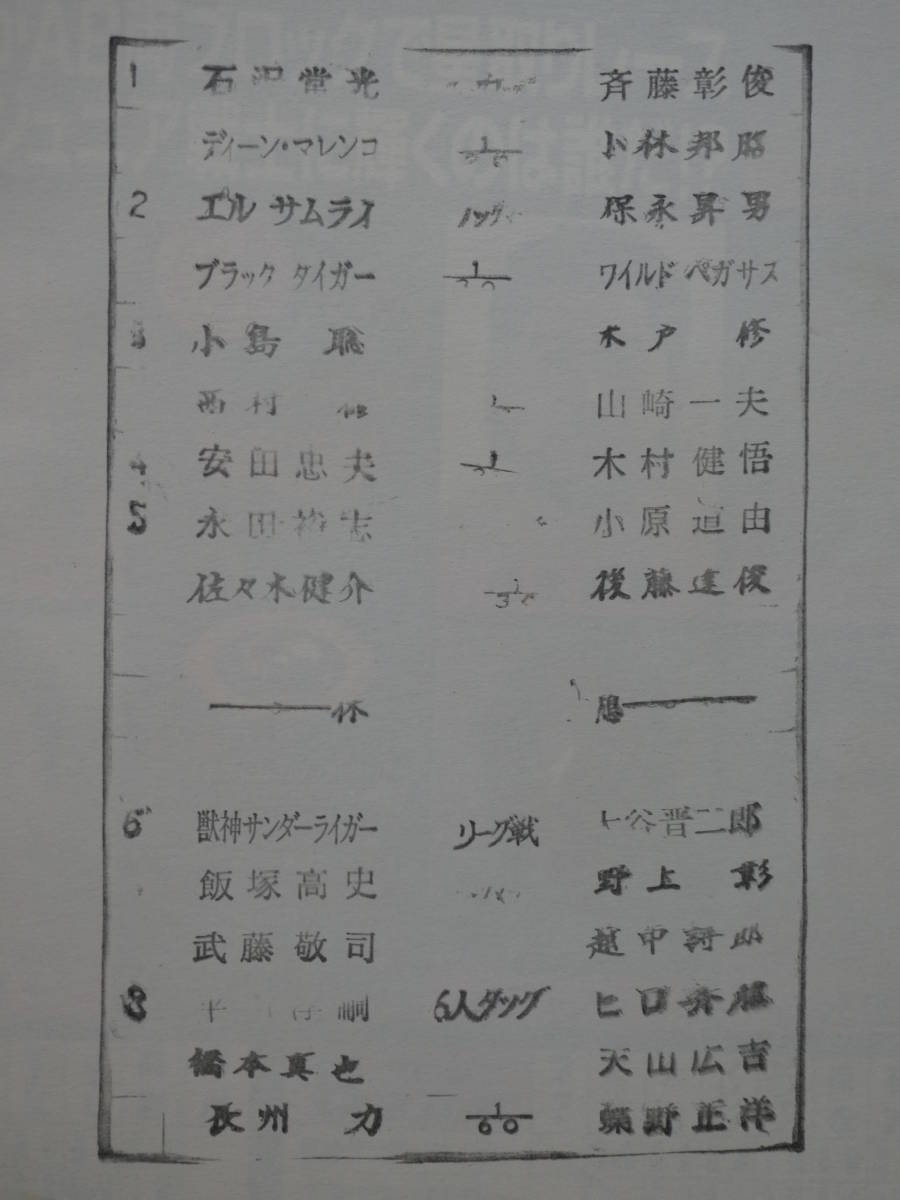 1 石沢常光 斉藤彰俊
ディーン・マレンコ 林邦昭
2 エル サムライ タッグ 保永昇男
ブラック タイガー 1 ワイルド ペガサス
3 小島 聡 木戸 修
西村 修 山崎一夫
4 安田忠夫 1 木村健悟
5 永田裕志 小原道由
佐々木健介 1/30 後藤達俊
休 憩
6 獣神サンダーライガー リーグ戦 大谷晋二郎
飯塚高史 野上 彰
武藤敬司 越中詩郎
8 平 淳嗣 6人タッグ ヒロ斉藤
橋本真也 天山広吉
長州 力 1/60 蝶野正洋